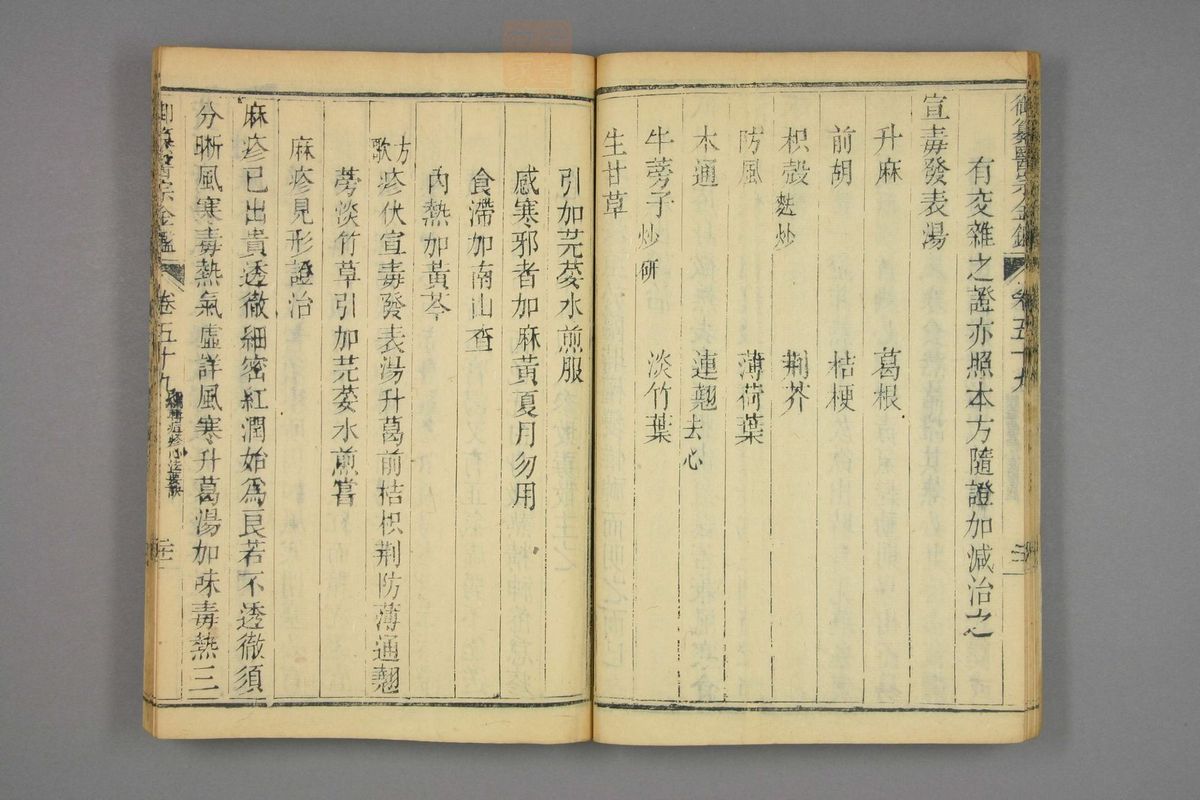 御纂醫宗金鑑 卷五十九
有夾雜之證亦照本方隨證加減治之
宣毒發表湯
升麻 葛根
前胡 桔梗
枳殼麩炒 荆芥
防風 薄荷葉
木通 連翹去心
牛蒡子炒研 淡竹葉
生甘草
引加芫荽水煎服
感寒邪者加麻黃夏月勿用
食滯加南山查
內熱加黃芩
方歌 疹伏宣毒發表湯升葛前桔枳荆防薄通翹
蒡淡竹草引加芫荽水煎嘗
麻疹見形證治
麻疹已出貴透徹細密紅潤始為良若不透徹須
分晰風寒毒熱氣虛詳風寒升葛湯加味毒熱三
醫宗金鑑 卷五十九 種痘疹心法要訣